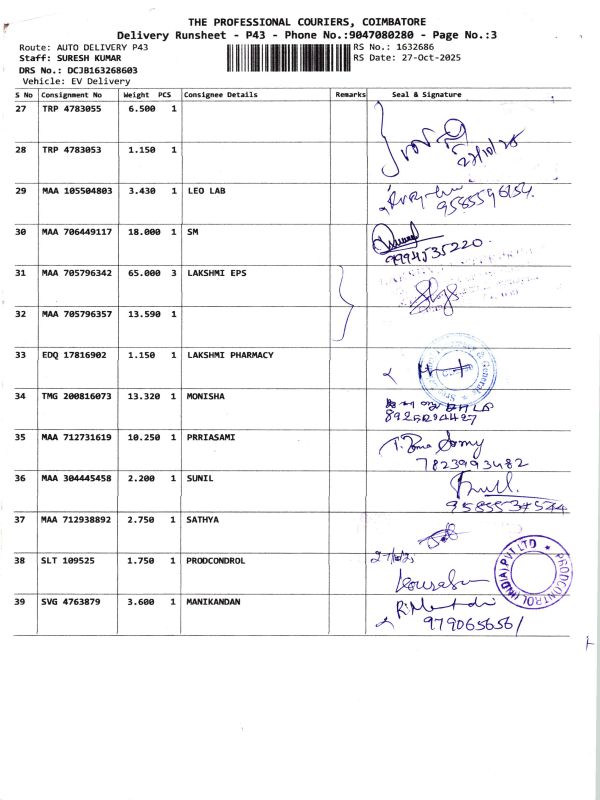 THE PROFESSIONAL COURIERS, COIMBATORE
Delivery Runsheet - P43 - Phone No.:9047080280 - Page No.:3
Route: AUTO DELIVERY P43 RS No.: 1632686
Staff: SURESH KUMAR RS Date: 27-Oct-2025
DRS No.: DCJB163268603
Vehicle: EV Delivery
S No Consignment No Weight PCS Consignee Details Remarks Seal & Signature
27 TRP 4783055 6.500 1
28 TRP 4783053 1.150 1
27/10/25
29 MAA 105504803 3.430 1 LEO LAB
9585596154
30 MAA 706449117 18.000 1 SM
9994535220
31 MAA 705796342 65.000 3 LAKSHMI EPS
32 MAA 705796357 13.590 1
33 EDQ 17816902 1.150 1 LAKSHMI PHARMACY
34 TMG 200816073 13.320 1 MONISHA
35 MAA 712731619 10.250 1 PRRIASAMI
7823993482
36 MAA 304445458 2.200 1 SUNIL
37 MAA 712938892 2.750 1 SATHYA
38 SLT 109525 1.750 1 PRODCONDROL
PRODCONTROL (INDIA) PVT LTD
39 SVG 4763879 3.600 1 MANIKANDAN
9790656561